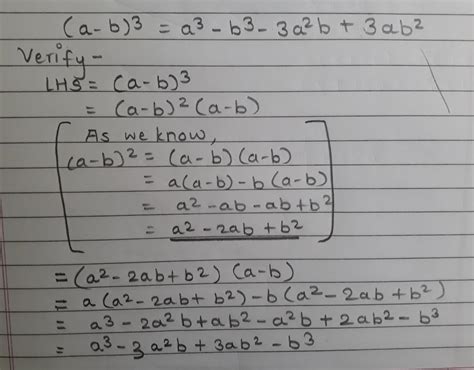 (a-b)³ = a³ - b³ - 3a²b + 3ab²
Verify -
LHS = (a-b)³
= (a-b)² (a-b)
As we know,
(a-b)² = (a-b) (a-b)
= a(a-b) - b (a-b)
= a² - ab - ab + b²
= a² - 2ab + b²
= (a² - 2ab + b²) (a-b)
= a (a² - 2ab + b²) - b (a² - 2ab + b²)
= a³ - 2a²b + ab² - a²b + 2ab² - b³
= a³ - 3a²b + 3ab² - b³